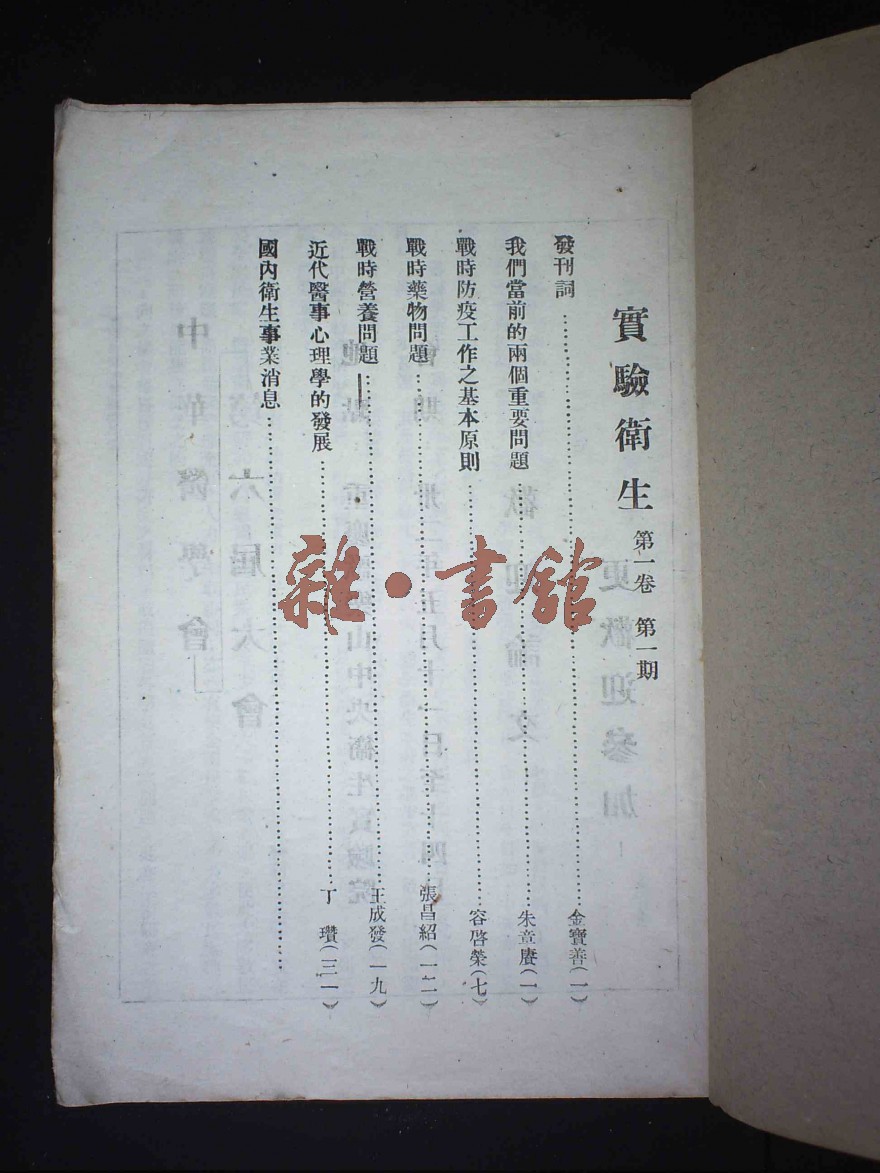 實驗衛生 第一卷 第一期
發刊詞……金寶善(一)
我們當前的兩個重要問題……朱章賡(一)
戰時防疫工作之基本原則……容啓榮(七)
戰時藥物問題……張昌紹(一二)
戰時營養問題……王成發(一九)
近代醫事心理學的發展……丁 瓚(三一)
國內衛生事業消息……
雜·書館